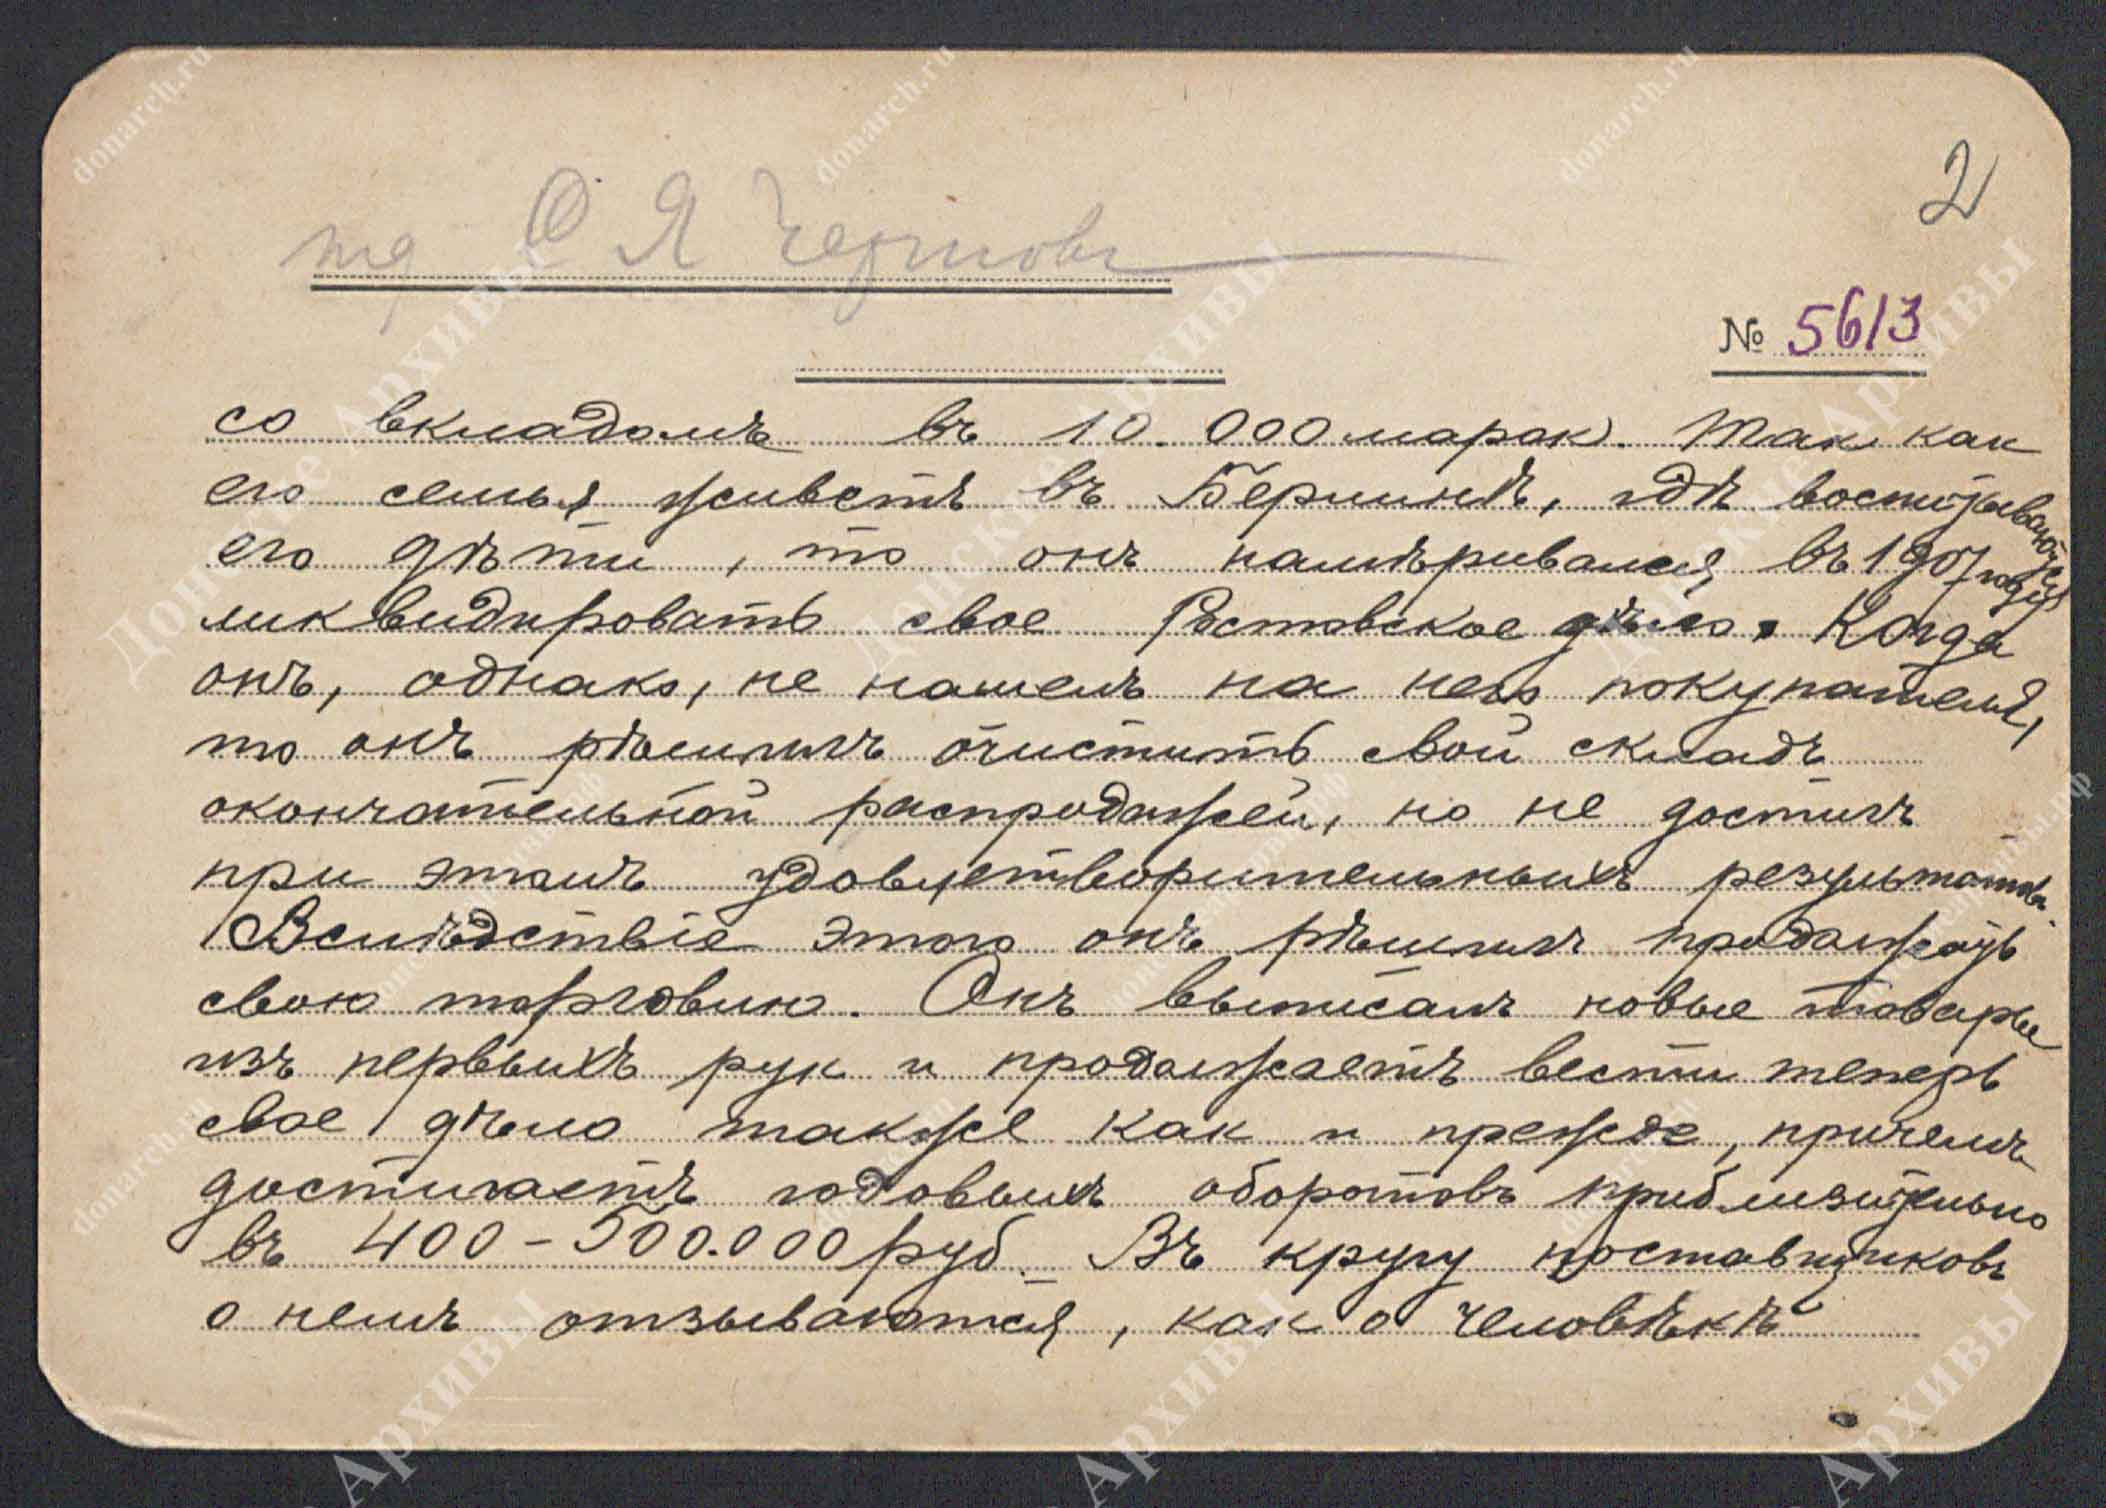 2
тд С Я Чернова
№ 5613
со вкладомъ въ 10.000 марак. Так как
его семья живетъ въ Берлинѣ, гдѣ воспитываются
его дѣти, то онъ намѣривался въ 1907 году
ликвидировать свое Ростовское дѣло. Когда
онъ, однако, не нашелъ на него покупателя,
то онъ рѣшилъ очистить свой складъ
окончательной распродажей, но не достигъ
при этомъ удовлетворительныхъ результатовъ.
Вслѣдствіе этого онъ рѣшилъ продолжать
свою торговлю. Онъ выписалъ новые товары
изъ первыхъ рук и продолжаетъ вести теперь
свое дѣло также как и прежде, причемъ
достигаетъ годовыхъ оборотовъ приблизительно
въ 400-500.000 руб. Въ кругу поставщиковъ
о немъ отзываются, как о человѣкѣ